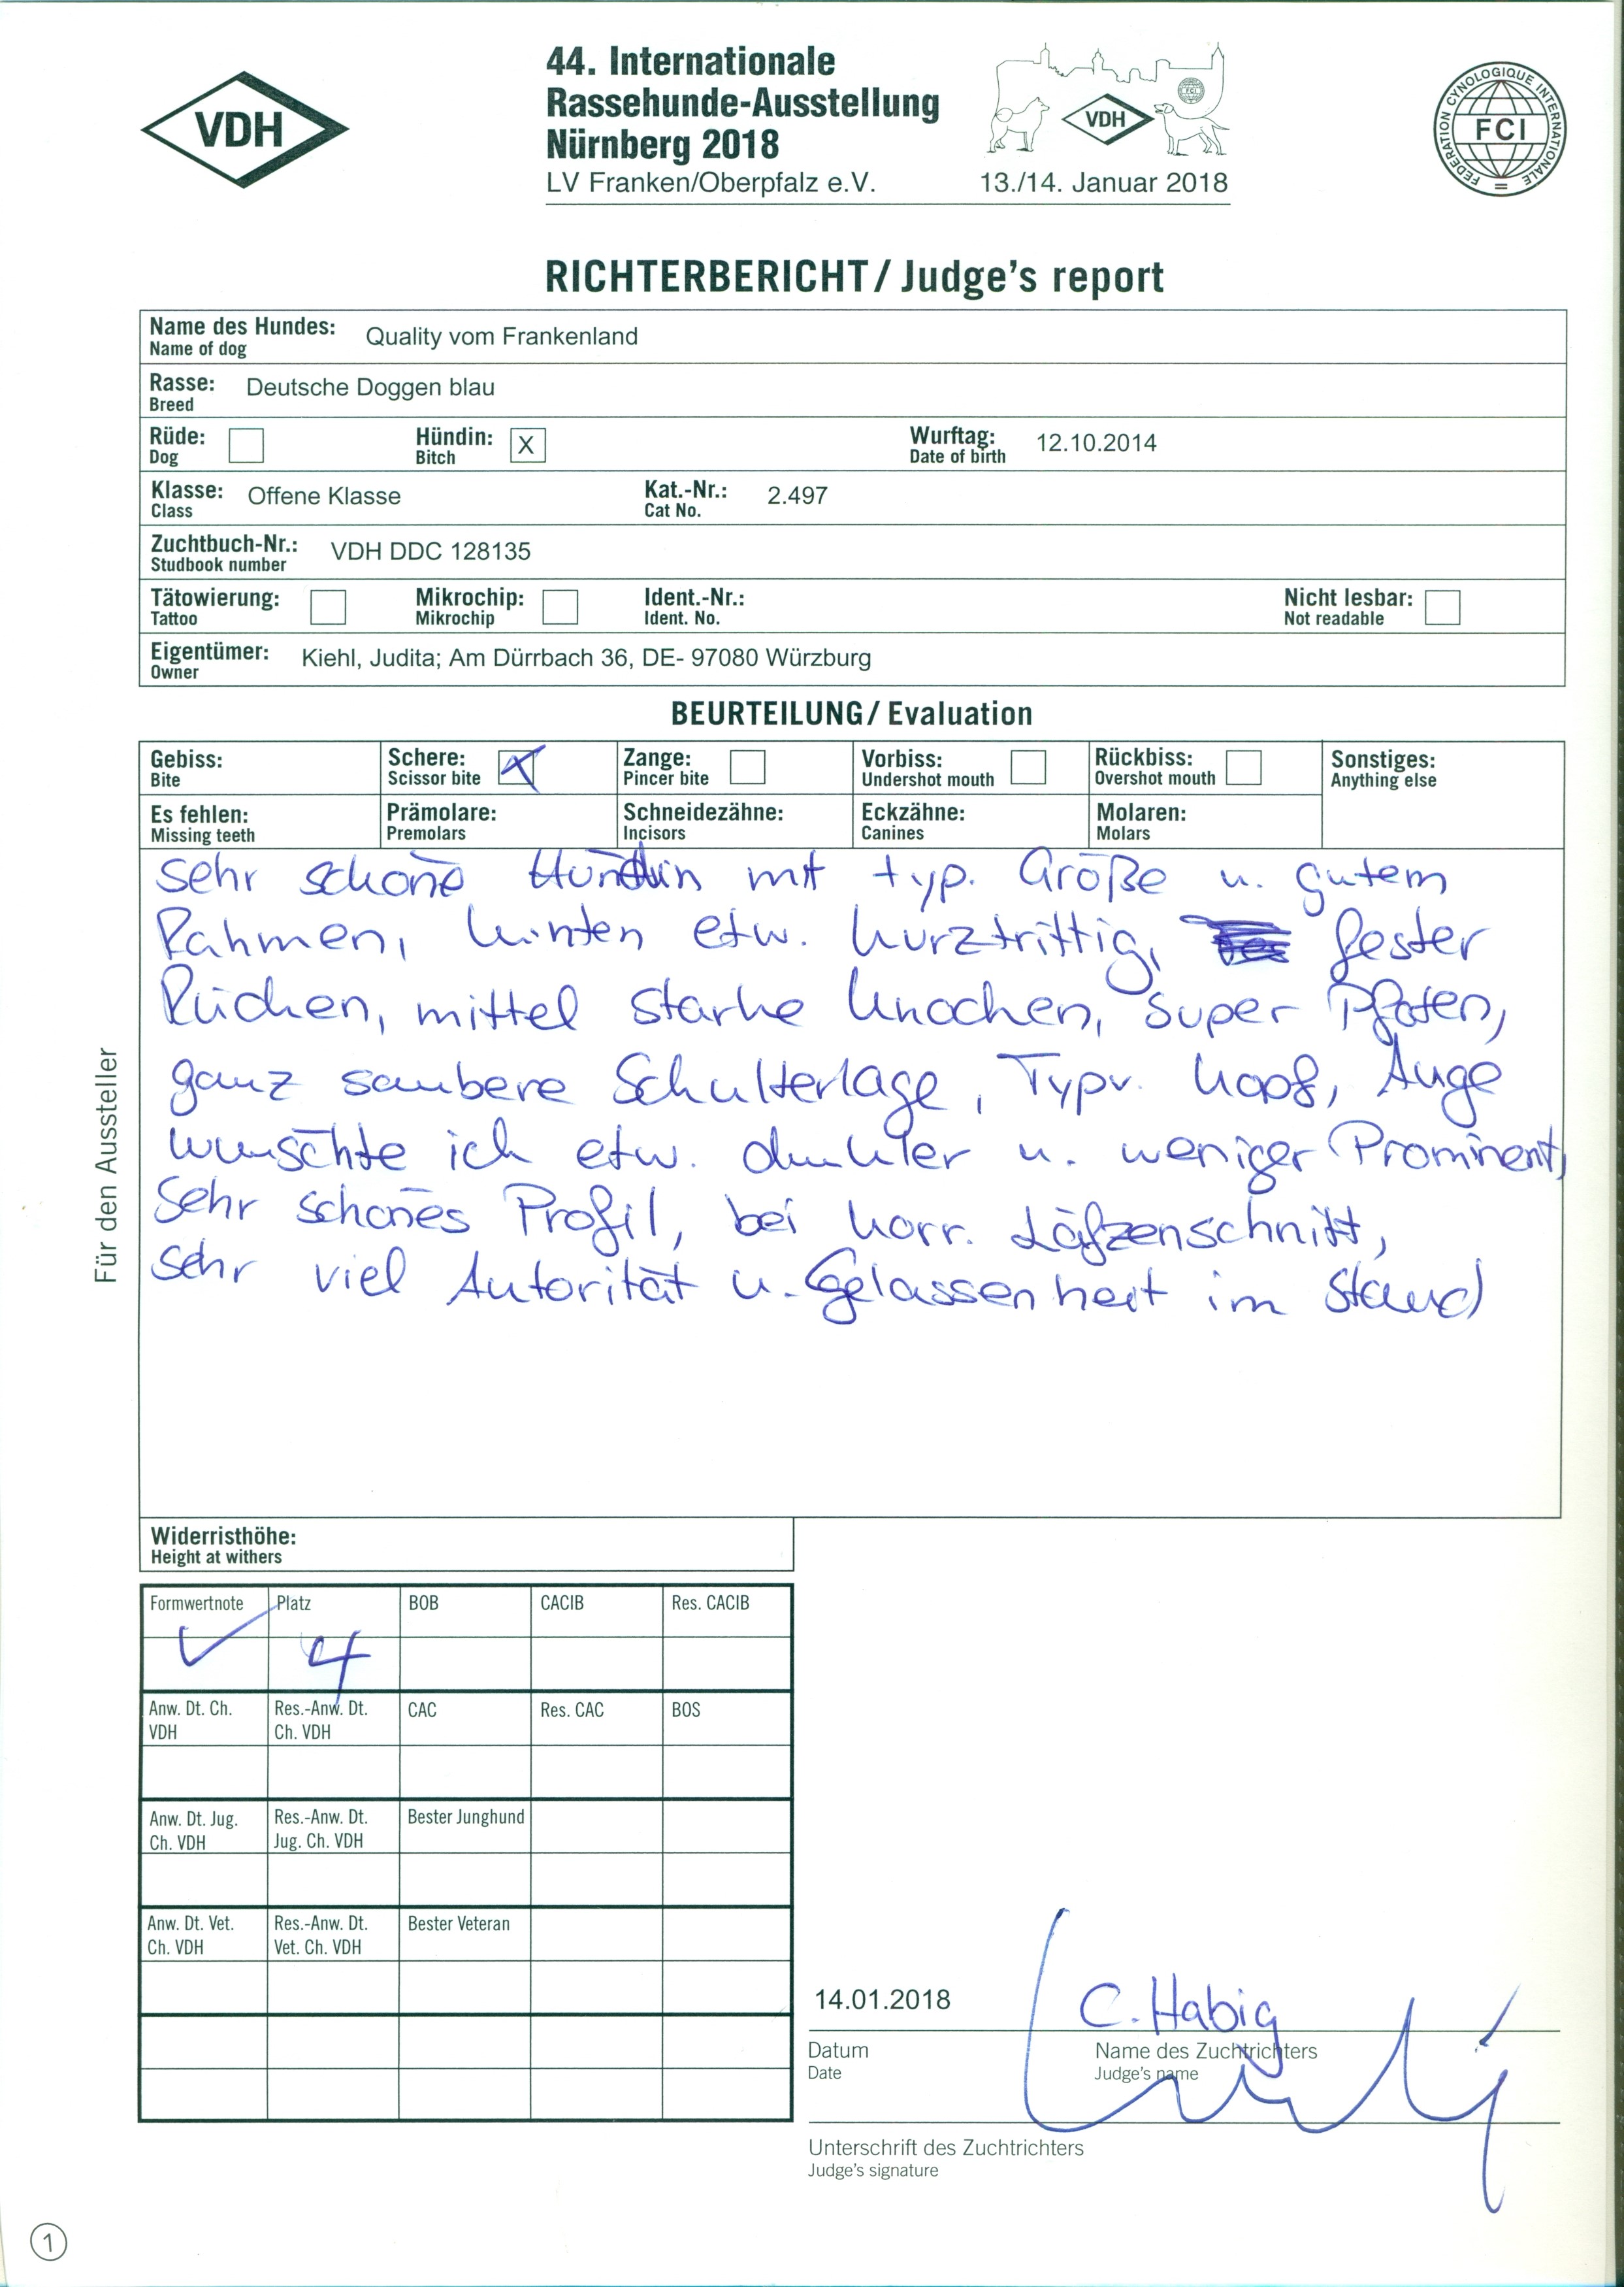 VDH
44. Internationale
Rassehunde-Ausstellung
Nürnberg 2018
LV Franken/Oberpfalz e.V. 13./14. Januar 2018
VDH
FCI
FEDERATION CYNOLOGIQUE INTERNATIONALE
FCI
RICHTERBERICHT / Judge's report
Name des Hundes: Quality vom Frankenland
Name of dog
Rasse: Deutsche Doggen blau
Breed
Rüde: Hündin: X Wurftag: 12.10.2014
Dog Bitch Date of birth
Klasse: Offene Klasse Kat.-Nr.: 2.497
Class Cat No.
Zuchtbuch-Nr.: VDH DDC 128135
Studbook number
Tätowierung: Mikrochip: Ident.-Nr.: Nicht lesbar:
Tattoo Mikrochip Ident. No. Not readable
Eigentümer: Kiehl, Judita; Am Dürrbach 36, DE- 97080 Würzburg
Owner
BEURTEILUNG / Evaluation
Gebiss: Schere: X Zange: Vorbiss: Rückbiss: Sonstiges:
Bite Scissor bite Pincer bite Undershot mouth Overshot mouth Anything else
Es fehlen: Prämolare: Schneidezähne: Eckzähne: Molaren:
Missing teeth Premolars Incisors Canines Molars
sehr schöne Hündin mit typ. Größe u. gutem
Rahmen, hinten etw. kurztrittig, fester
Rücken, mittel starke Knochen, super Pfoten,
ganz saubere Schulterlage, Typv. Kopf, Auge
wünschte ich etw. dunkler u. weniger Prominent,
Sehr schönes Profil, bei korr. Läfzenschnitt,
sehr viel Autorität u. Gelassenheit im Stand
Für den Aussteller
Widerristhöhe:
Height at withers
Formwertnote Platz BOB CACIB Res. CACIB
V 4
Anw. Dt. Ch. Res.-Anw. Dt. CAC Res. CAC BOS
VDH Ch. VDH
Anw. Dt. Jug. Res.-Anw. Dt. Bester Junghund
Ch. VDH Jug. Ch. VDH
Anw. Dt. Vet. Res.-Anw. Dt. Bester Veteran
Ch. VDH Vet. Ch. VDH
14.01.2018 C. Habig
Datum Name des Zuchtrichters
Date Judge's name
Unterschrift des Zuchtrichters
Judge's signature
1